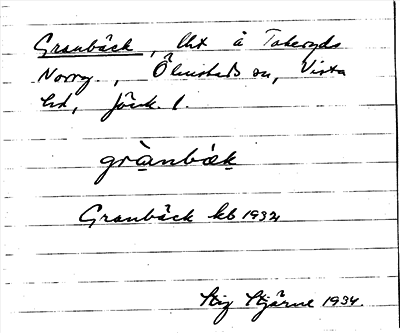 Granbäck, lht å Taberyds
Norrg., Ölmstads sn, Vista
hd, Jönk. l.
grànbäk
Granbäck kb 1932
Stig Stjärne 1934.